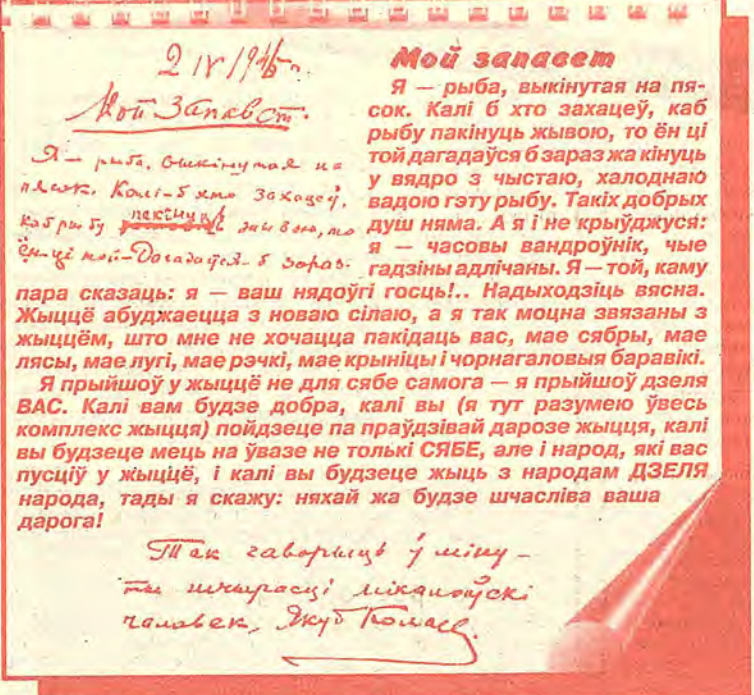 2 IV 1946 г.
Мой Запавет.
Я — рыба, выкінутая на
пясок. Калі-б хто захацеў,
каб рыбу пакінуць жывою, то
ён-ці той-Дагадаўся-б зараз-
Мой запавет
Я — рыба, выкінутая на пя-
сок. Калі б хто захацеў, каб
рыбу пакінуць жывою, то ён ці
той дагадаўся б зараз жа кінуць
у вядро з чыстаю, халоднаю
вадою гэту рыбу. Такіх добрых
душ няма. А я і не крыўджуся:
я — часовы вандроўнік, чые
гадзіны адлічаны. Я — той, каму
пара сказаць: я — ваш нядоўгі госць!.. Надыходзіць вясна.
Жыццё абуджаецца з новаю сілаю, а я так моцна звязаны з
жыццём, што мне не хочацца пакідаць вас, мае сябры, мае
лясы, мае лугі, мае рэчкі, мае крыніцы і чорнагаловыя баравікі.
Я прыйшоў у жыццё не для сябе самога — я прыйшоў дзеля
ВАС. Калі вам будзе добра, калі вы (я тут разумею ўвесь
комплекс жыцця) пойдзеце па праўдзівай дарозе жыцця, калі
вы будзеце мець на ўвазе не толькі СЯБЕ, але і народ, які вас
пусціў у жыццё, і калі вы будзеце жыць з народам ДЗЕЛЯ
народа, тады я скажу: няхай жа будзе шчасліва ваша
дарога!
Так гаворыць ў міну-
ты шчырасці міканоўскі
чалавек, Якуб Колас.